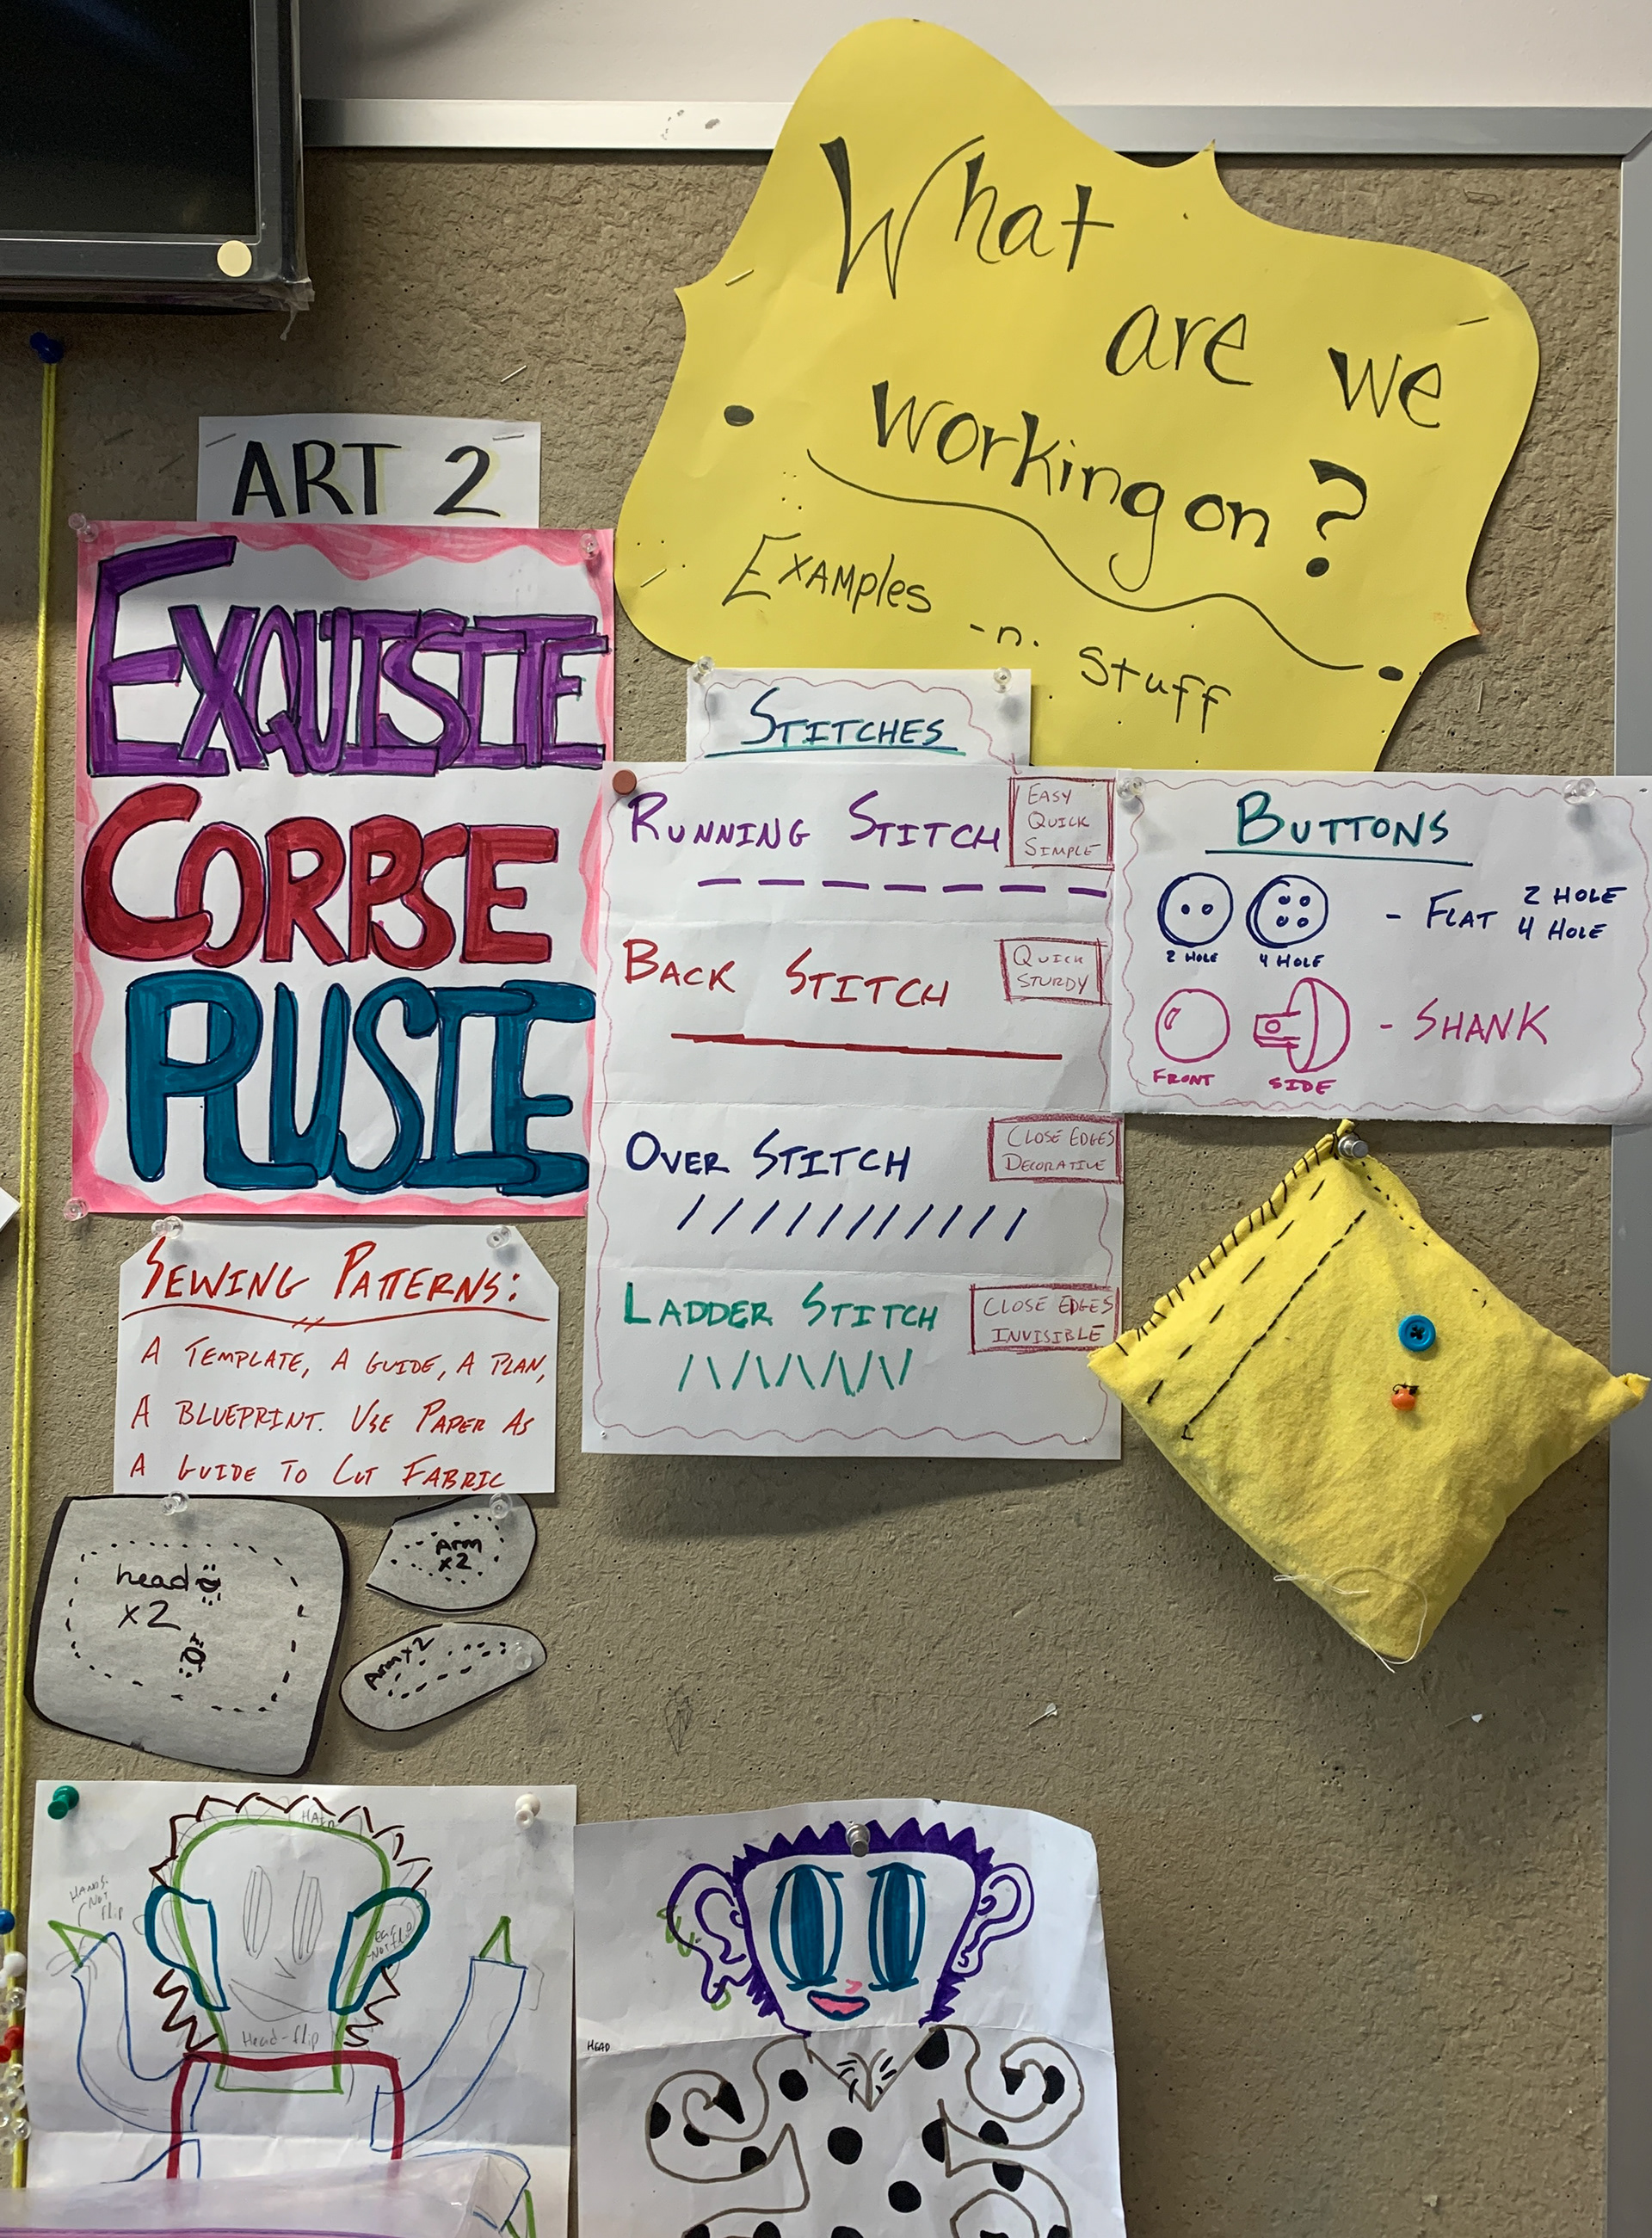 What
are we
working on?
Examples -n- Stuff
ART 2
EXQUISITE
CORPSE
PLUSIE
SEWING PATTERNS:
A TEMPLATE, A GUIDE, A PLAN,
A BLUEPRINT. USE PAPER AS
A GUIDE TO CUT FABRIC
STITCHES
RUNNING STITCH
EASY
QUICK
SIMPLE
BACK STITCH
QUICK
STURDY
OVER STITCH
CLOSE EDGES
DECORATIVE
LADDER STITCH
CLOSE EDGES
INVISIBLE
BUTTONS
2 HOLE
4 HOLE
- FLAT
2 HOLE
4 HOLE
FRONT
SIDE
- SHANK
head
x2
Arm
x2
Arm x2
HAIR
HANDS-
NOT
flip
Head-flip
HEAD